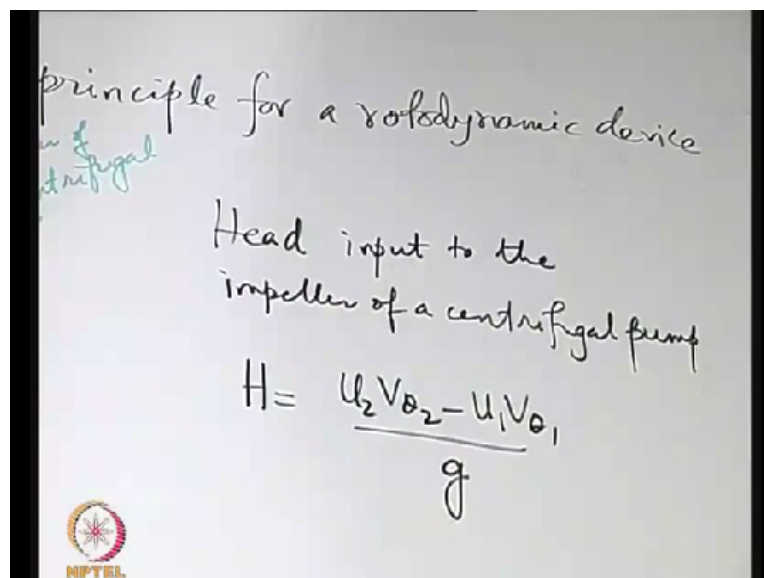 principle for a rotodynamic device
of
Head input to the
impeller of a centrifugal pump
H = U₂Vθ₂ − U₁Vθ₁
g
NPTEL